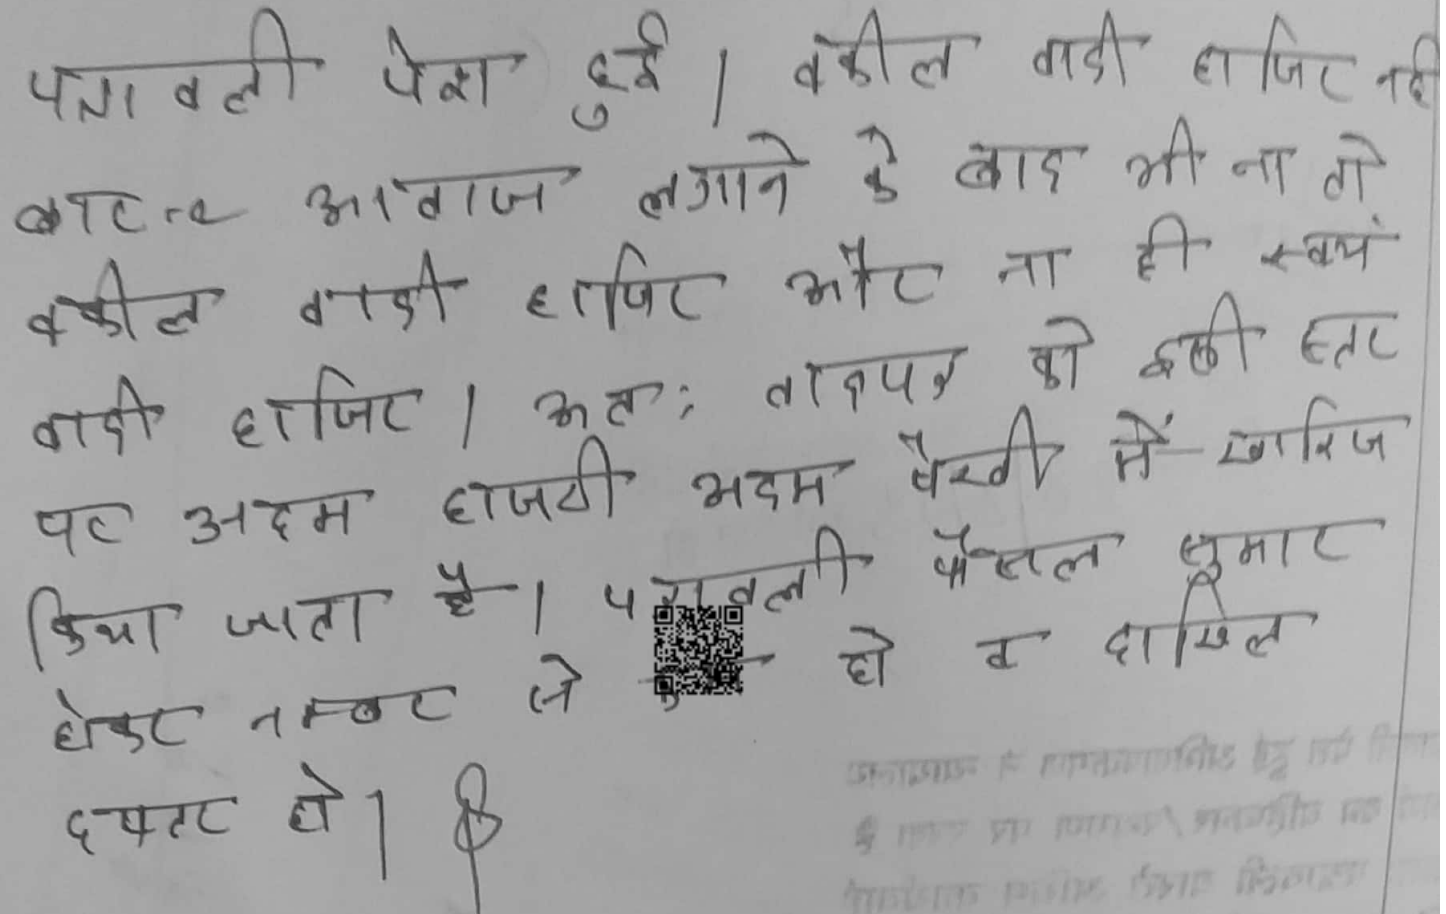 पत्रावली पेश हुई । वकील वादी हाजिर नही
बार-२ आवाज लगाने के बाद भी ना तो
वकील वादी हाजिर और ना ही स्वयं
वादी हाजिर । अतः वादपत्र को इसी स्तर
पर अदम हाजरी अदम पैरवी में खारिज
किया जाता है । पत्रावली फैसल सुमार
होकर नम्बर से हो व दाखिल
दफ्तर हो ।